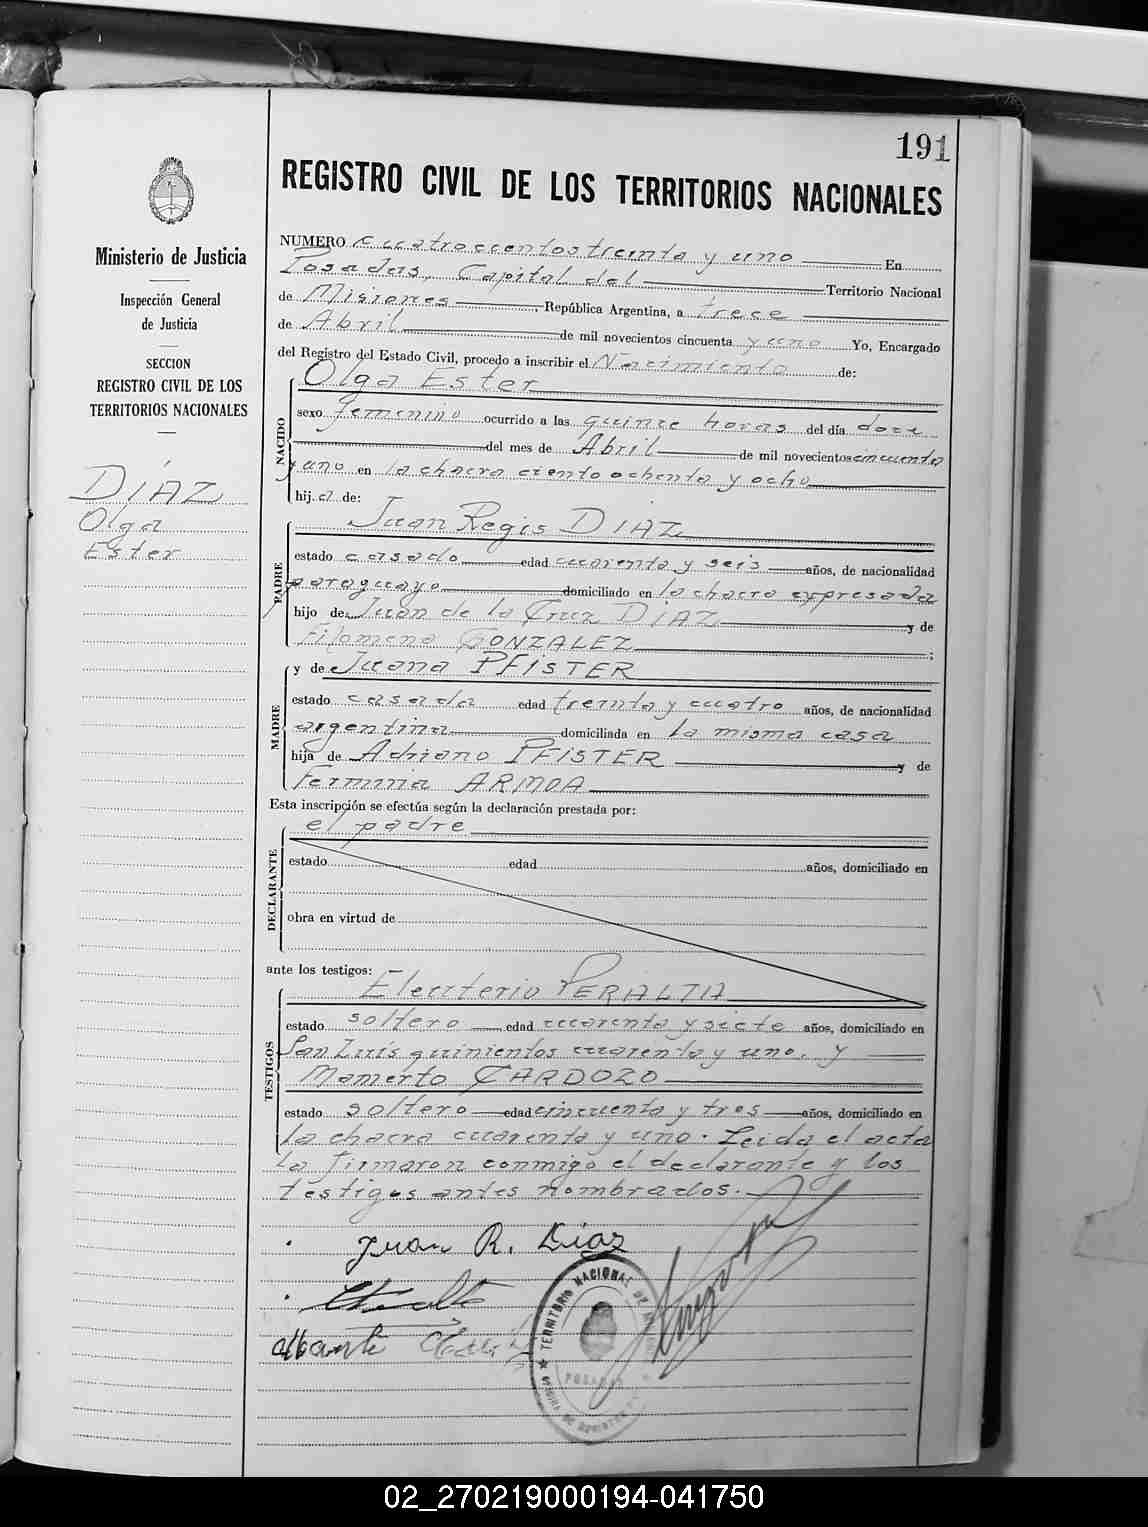 191
REGISTRO CIVIL DE LOS TERRITORIOS NACIONALES
Ministerio de Justicia
Inspección General
de Justicia
SECCION
REGISTRO CIVIL DE LOS
TERRITORIOS NACIONALES
DIAZ
Olga
Ester
NUMERO cuatrocientos treinta y uno En
Posadas, Capital del Territorio Nacional
de Misiones, República Argentina, a trece
de Abril de mil novecientos cincuenta y uno Yo, Encargado
del Registro del Estado Civil, procedo a inscribir el Nacimiento de:
NACIDO
Olga Ester
sexo femenino ocurrido a las quince horas del día doce
del mes de Abril de mil novecientos cincuenta
y uno en la chacra ciento ochenta y ocho
hij a de:
PADRE
Juan Regis DIAZ
estado casado edad cuarenta y seis años, de nacionalidad
paraguayo domiciliado en la chacra expresada
hijo de Juan de la Cruz DIAZ y de
Filomena GONZALEZ ;
MADRE
y de Juana PFISTER
estado casada edad treinta y cuatro años, de nacionalidad
argentina domiciliada en la misma casa
hija de Adriano PFISTER y de
Fermina ARMOA
Esta inscripción se efectúa según la declaración prestada por:
DECLARANTE
el padre
estado edad años, domiciliado en
obra en virtud de
ante los testigos:
TESTIGOS
Eleuterio PERALTA
estado soltero edad cuarenta y siete años, domiciliado en
San Luis quinientos cuarenta y uno, y
Mamerto CARDOZO
estado soltero edad cincuenta y tres años, domiciliado en
la chacra cuarenta y uno. Leida el acta
la firmaron conmigo el declarante y los
testigos antes nombrados.
Juan R. Diaz
TERRITORIO NACIONAL DE
POSADAS
02_270219000194-041750